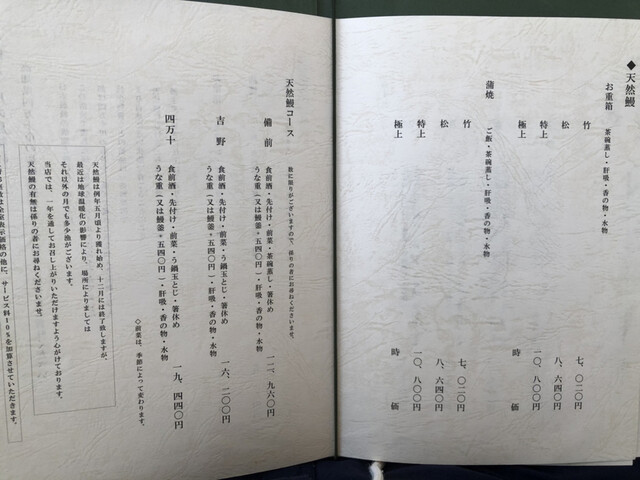 ◆天然鰻
お重箱 茶碗蒸し・肝吸・香の物・水物
竹 七、〇二〇円
松 八、六四〇円
特上 一〇、八〇〇円
極上 時価
蒲焼 ご飯・茶碗蒸し・肝吸・香の物・水物
竹 七、〇二〇円
松 八、六四〇円
特上 一〇、八〇〇円
極上 時価
数に限りがございますので、係りの者にお尋ねくださいませ。
天然鰻コース
備前 食前酒・先付け・前菜・茶碗蒸し・箸休め
うな重(又は鰻釜+五四〇円)・肝吸・香の物・水物 一二、九六〇円
吉野 食前酒・先付け・前菜・う鍋玉とじ・箸休め
うな重(又は鰻釜+五四〇円)・肝吸・香の物・水物 一六、二〇〇円
四万十 食前酒・先付け・前菜・う鍋玉とじ・箸休め
うな重(又は鰻釜+五四〇円)・肝吸・香の物・水物 一九、四四〇円
◇前菜は、季節によって変わります。
天然鰻は例年五月頃より獲れ始め、十二月には終了致しますが、
最近は地球温暖化の影響により、場所によりましては
それ以外の月でも多少漁がございます。
当店では、一年を通してお召し上がりいただけますよう心がけております。
天然鰻の有無は係りの者にお尋ねくださいませ。
表示価格の他に、サービス料10%を加算させていただきます。